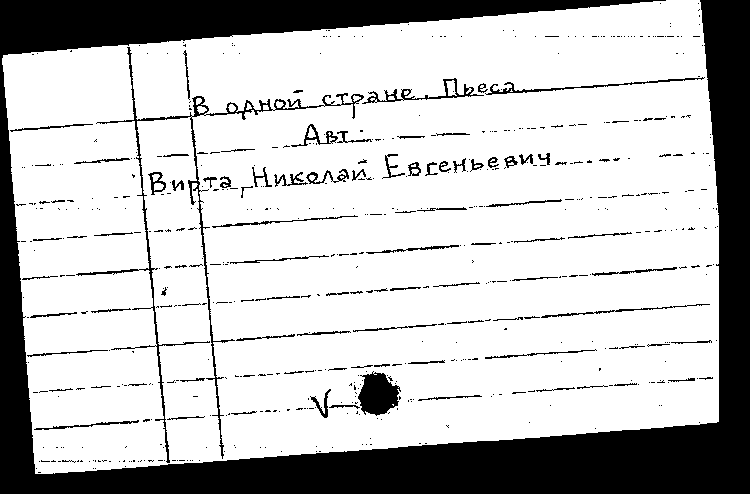 В одной стране. Пьеса.
Авт.:
Вирта, Николай Евгеньевич.
V